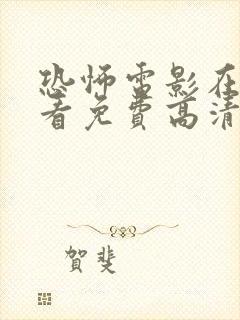 恐怖雷影在
看免費高清
賀斐